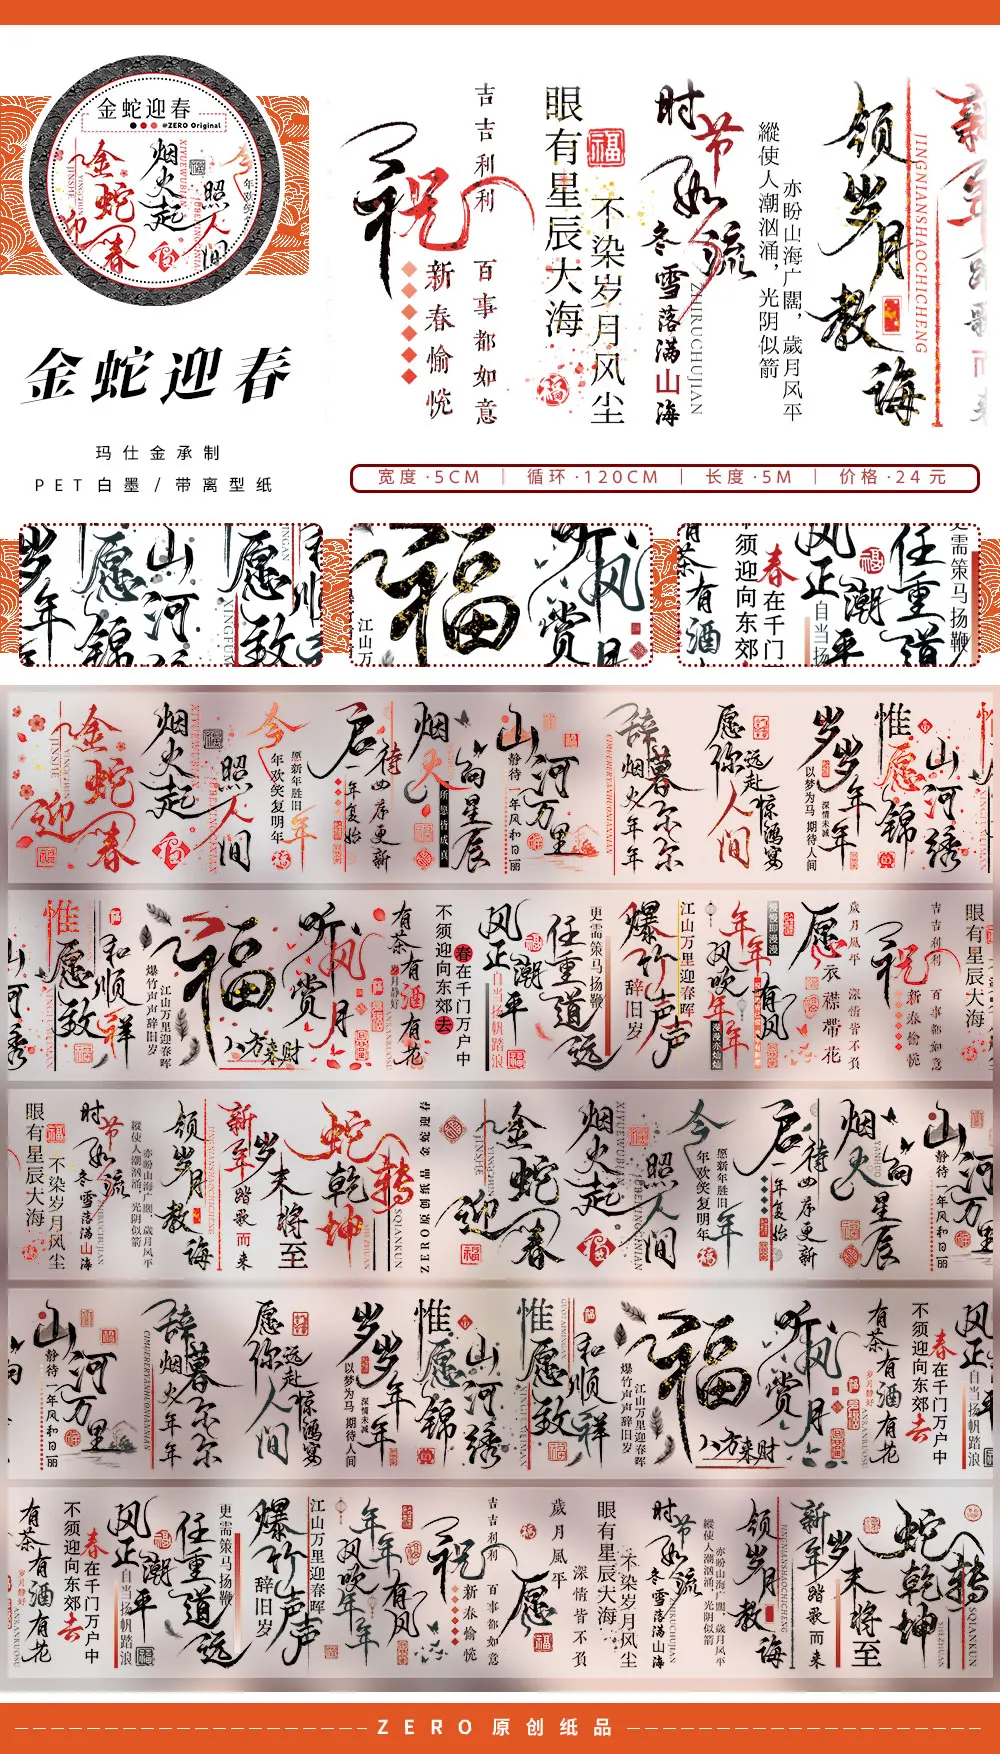 金蛇迎春
@ZERO Original
金蛇迎春
烟火起
照人间
金蛇迎春
玛仕金承制
PET白墨/带离型纸
祝
吉吉利利
百事都如意
新春愉悦
眼有星辰大海
不染岁月风尘
福
时节如流
冬雪落满山海
縱使人潮汹涌，光阴似箭
亦盼山海广闊，歲月风平
领岁月教诲
JINGNIANSHAOCHICHENG
宽度·5CM｜循环·120CM｜长度·5M｜价格·24元
岁年
愿锦
山河
愿致
福
江山万
听风赏月
有酒
须迎向东郊
春在千门
风正潮平
自当扬
任重道
更需策马扬鞭
金蛇迎春
烟火起
照人间
今年欢笑复明年
愿新年胜旧年
启
待一年复始
四序更新
烟火向星辰
所愿皆成真
山河万里
静待一年风和日丽
辞暮尔尔
烟火年年
愿你远赴惊鸿宴
人间
岁岁年年
以梦为马 期待人间
深情未减
惟愿山河锦绣
惟愿致和顺祥
福
爆竹声声辞旧岁
江山万里迎春晖
八方来财
听风赏月
有茶有酒有花
岁月静好
不须迎向东郊去
春在千门万户中
风正潮平
自当扬帆踏浪
任重道远
更需策马扬鞭
爆竹声声辞旧岁
江山万里迎春晖
年年
风吹年年有风
愿
衣襟带花
歲月風平
深情皆不負
祝
吉吉利利
新春愉悦
百事都如意
眼有星辰大海
眼有星辰大海
不染岁月风尘
时节如流
冬雪落满山海
縱使人潮汹涌，光阴似箭
亦盼山海广闊，歲月风平
领岁月教诲
新年踏歌而来
岁末将至
蛇转乾坤
ZERO原创纸品 金蛇迎春
金蛇迎春
烟火起
照人间
今年欢笑复明年
愿新年胜旧年
启
待一年复始
四序更新
烟火向星辰
山河万里
静待一年风和日丽
山河万里
静待一年风和日丽
辞暮尔尔
烟火年年
愿你远赴惊鸿宴
人间
岁岁年年
以梦为马 期待人间
深情未减
惟愿山河锦绣
惟愿致和顺祥
福
爆竹声声辞旧岁
江山万里迎春晖
八方来财
听风赏月
有茶有酒有花
岁月静好
不须迎向东郊去
春在千门万户中
风正
自当扬帆踏浪
有茶有酒有花
岁月静好
不须迎向东郊去
春在千门万户中
风正潮平
自当扬帆踏浪
任重道远
更需策马扬鞭
爆竹声声辞旧岁
江山万里迎春晖
年年
风吹年年有风
祝
吉吉利利
新春愉悦
百事都如意
愿
歲月風平
深情皆不負
眼有星辰大海
不染岁月风尘
时节如流
冬雪落满山海
縱使人潮汹涌，光阴似箭
亦盼山海广闊，歲月风平
领岁月教诲
新年踏歌而来
岁末将至
蛇转乾坤
ZERO原创纸品